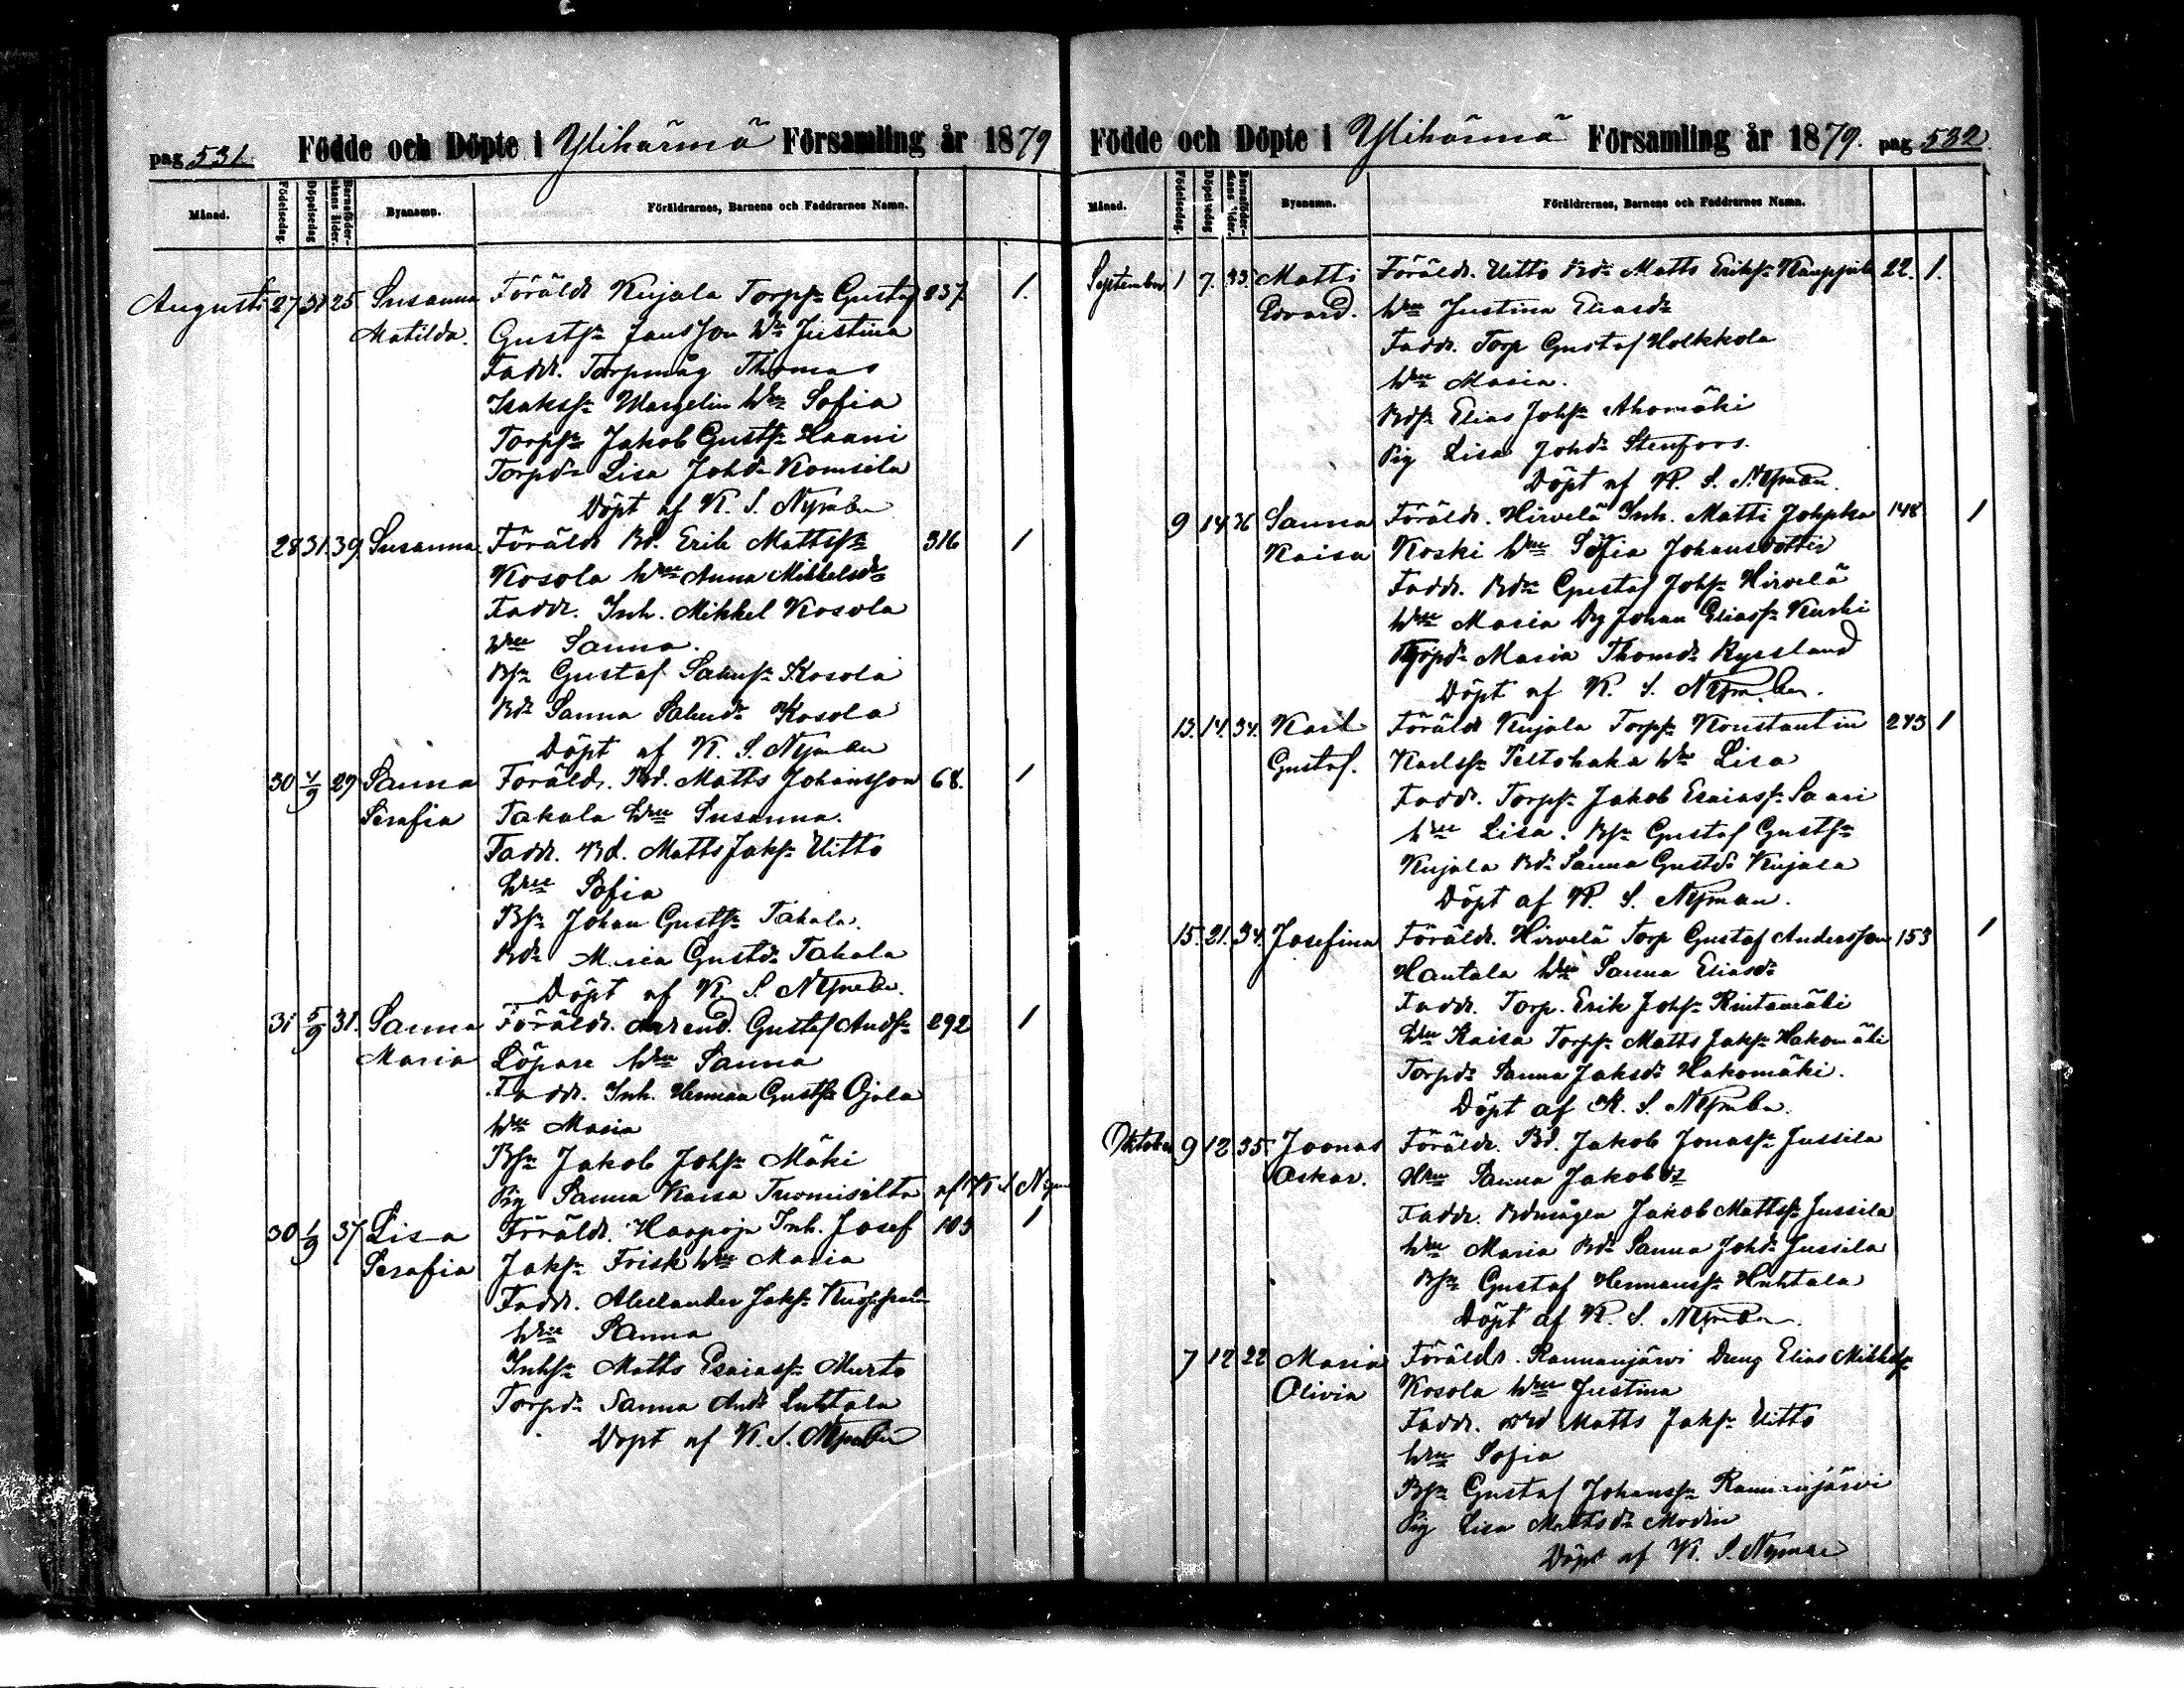 pag 531. Födde och Döpte i Ylihärmä Församling år 1879
Månad. Födelsedag. Döpelsedag Barnaföderskans ålder. Byanamn. Föräldrarnes, Barnens och Faddrarnes Namn.
Augusti 27 31 25. Susanna Föräldr Kujala Torpsn Gustaf 237. 1.
Matilda. Gustfsn Jansson Hu Justina
Faddr. Torpmåg Thomas
Isakssn Wargelin Hru Sofia
Torpsn Jakob Gustfsn Haani
Torpdr Lisa Johdr Komsila
Döpt af K. S. Nyman
28 31. 39 Susanna. Föräldr Bd. Erik Mattssn 316 1
Kosola hru Anna Mikkelsdr
Faddr. Inh. Mikkel Kosola
Hru Sanna.
Bsn Gustaf Salusn Kosola
Bdr Sanna Kosola
Döpt af K. S. Nyman
30 1/9 27 Sanna Föräldr. Bd. Matts Johansson 68. 1
Serafia Takala Hru Susanna.
Faddr. Bd. Matts Jaksn Uitto
Hru Sofia
Bsn Johan Gustfsn Takala.
Bdr Maria Gustdr Takala
Döpt af K. S. Nyman.
31 5/9 31. Sanna Föräldr. Arrend. Gustaf Andsn 292 1
Maria Löpare Hru Sanna
Faddr. Inh. Herman Gustfsn Ojala
hru Maria
Bsn Jakob Johsn Mäki
Pig Sanna Kaisa Tuomisilta af K S Nyman
30 1/9 37 Lisa Föräldr. Haapoja Inh. Josef 103 1
Serafia Jaksn Frisk hru Maria
Faddr. Alexander Jaksn
hru Sanna
Inhsn Matts Esaiassn Murto
Torpdr Sanna Andr Luhtala
Döpt af K. S. Nyman
Födde och Döpte i Ylihärmä Församling år 1879. pag 532.
Månad. Födelsedag. Döpelsedag Barnaföderskans ålder. Byanamn. Föräldrarnes, Barnens och Faddrarnes Namn.
September 1 7. 33. Matti Föräldr. Uitto Bdr Matts Eriksn 22. 1.
Edvard. Hru Justina Eliasdr
Faddr. Torp Gustaf Holkkola
hru Maria.
Bdsn Elias Johsn Ahomäki
Pig Lisa Johdr Stenfors.
Döpt af K. S. Nyman.
9 14 36 Sanna Föräldr. Hirvelä Inh. Matti 148 1
Kaisa Koski hru Sofia Johansdotter
Faddr. Bdn Gustaf Johsn Hirvelä
hru Maria Dg Johan Eliassn
Torpdr Maria Thomdr Ryssland
Döpt af K. S. Nyman.
13. 14. 34. Karl Föräldr Kujala Torpsn Konstantin 243 1
Gustaf. Karlssn Peltohaka hru Lisa
Faddr. Torpsn Jakob Esaiassn Saari
hru Lisa. Bsn Gustaf Gustfsn
Kujala Bdr Sanna Gustdr Kujala
Döpt af K. S. Nyman.
15. 21. 34. Josefina Föräldr. Hirvelä Torp Gustaf Andersson 153 1
Hantala hru Sanna Eliasdr
Faddr. Torp. Erik Johsn Rintamäki
Hru Kaisa Torpsn Matts Jaksn Hakomäki
Torpdr Sanna Jaksdr Hakomäki.
Döpt af K. S. Nyman.
Oktober 9 12 35 Joonas Föräldr. Bd. Jakob Jonassn Jussila
Oskar. Hru Sanna Jakobdr
Faddr. Bdmågen Jakob Mattssn Jussila
hru Maria Bdr Sanna Johdr Jussila
Bsn Gustaf Hermanssn Huhtala
Döpt af K. S. Nyman.
7 12 22 Maria Föräldr. Rannanjärvi Dreng Elias Mikkelsn
Olivia Kosola hru Justina
Faddr. Bd Matts Jaksn Uitto
hru Sofia
Bsn Gustaf Johanssn Rannanjärvi
Pig Lisa Mattsdr Modin
Döpt af K. S. Nyman